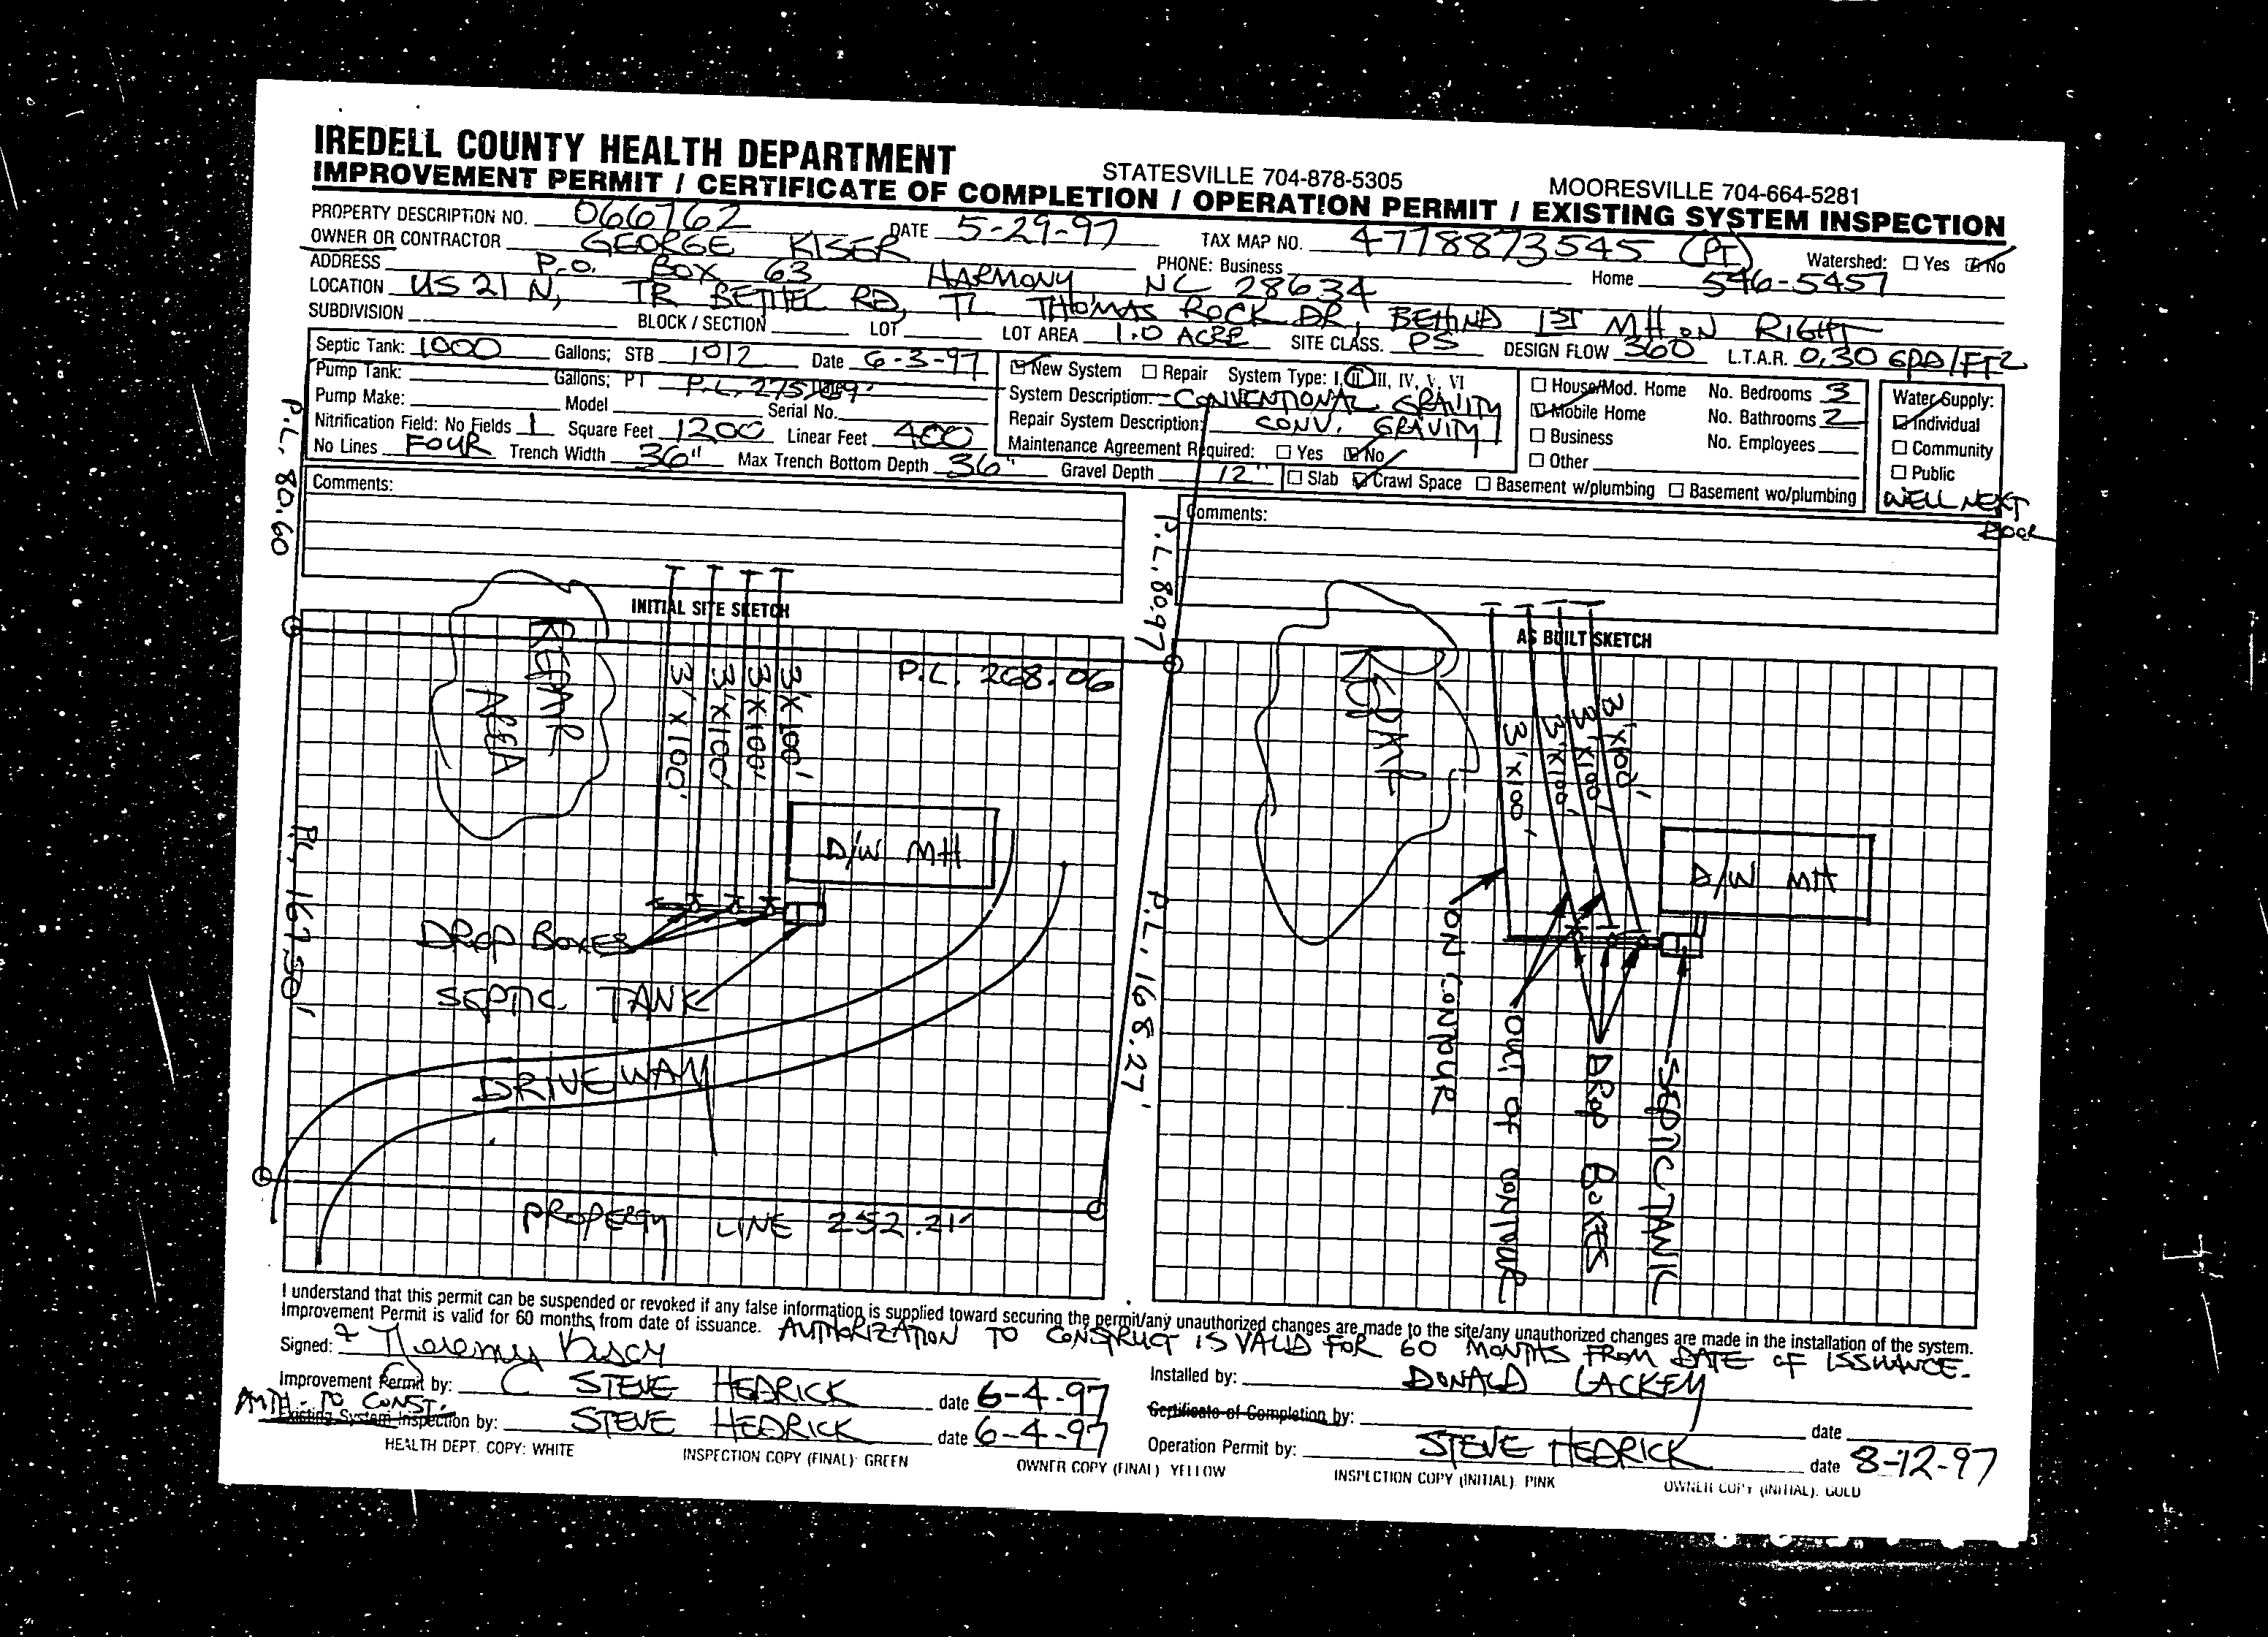 IREDELL COUNTY HEALTH DEPARTMENT STATESVILLE 704-878-5305 MOORESVILLE 704-664-5281
IMPROVEMENT PERMIT / CERTIFICATE OF COMPLETION / OPERATION PERMIT / EXISTING SYSTEM INSPECTION
PROPERTY DESCRIPTION NO. 066762 DATE 5-29-97 TAX MAP NO. 4778873545 (PT) Watershed: ☐ Yes ☑ No
OWNER OR CONTRACTOR GEORGE KISER PHONE: Business Home 546-5457
ADDRESS P.O. BOX 63 HARMONY NC 28634
LOCATION US 21 N, TR BETHEL RD, TL THOMAS ROCK DR, BEHIND 1ST MH ON RIGHT
SUBDIVISION BLOCK / SECTION LOT LOT AREA 1.0 ACRE SITE CLASS. PS DESIGN FLOW 360 L.T.A.R. 0.30 GPD/FT2
Septic Tank: 1000 Gallons; STB 1012 Date 6-3-97
Pump Tank: Gallons; PT P.L. 275.
Pump Make: Model Serial No.
Nitrification Field: No Fields 1 Square Feet 1200 Linear Feet 400
No Lines FOUR Trench Width 36" Max Trench Bottom Depth 36" Gravel Depth 12"
☑ New System ☐ Repair System Type: I, II, III, IV, V, VI
System Description: CONVENTIONAL GRAVITY
Repair System Description: CONV. GRAVITY
Maintenance Agreement Required: ☐ Yes ☑ No
☐ Slab ☑ Crawl Space ☐ Basement w/plumbing ☐ Basement wo/plumbing
☐ House/Mod. Home No. Bedrooms 3
☑ Mobile Home No. Bathrooms 2
☐ Business No. Employees
☐ Other
Water Supply:
☑ Individual
☐ Community
☐ Public
WELL NEXT
DOOR
Comments:
Comments:
P.L. 80.60
P.L. 80.97
INITIAL SITE SKETCH
REPAIR
AREA
3'X100'
3'X100'
3'X100'
3'X100'
P.L. 268.06
D/W MH
P.L. 167.50'
DROP BOXES
SEPTIC TANK
DRIVEWAY
PROPERTY LINE 252.21'
P.L. 168.27'
AS BUILT SKETCH
REPAIR
3'X100'
3'X100'
3'X100'
3'X100'
D/W MH
ON CONTOUR
OUT OF CONTOUR
DROP BOXES
SEPTIC TANK
I understand that this permit can be suspended or revoked if any false information is supplied toward securing the permit/any unauthorized changes are made to the site/any unauthorized changes are made in the installation of the system.
Improvement Permit is valid for 60 months from date of issuance. AUTHORIZATION TO CONSTRUCT IS VALID FOR 60 MONTHS FROM DATE OF ISSUANCE.
Signed:
Improvement Permit by: STEVE HEDRICK date 6-4-97
AUTH. TO CONST.
Existing System Inspection by: STEVE HEDRICK date 6-4-97
Installed by: DONALD LACKEY
Certificate of Completion by: date
Operation Permit by: STEVE HEDRICK date 8-12-97
HEALTH DEPT. COPY: WHITE INSPECTION COPY (FINAL): GREEN OWNER COPY (FINAL) YELLOW INSPECTION COPY (INITIAL). PINK OWNER COPY (INITIAL). GOLD